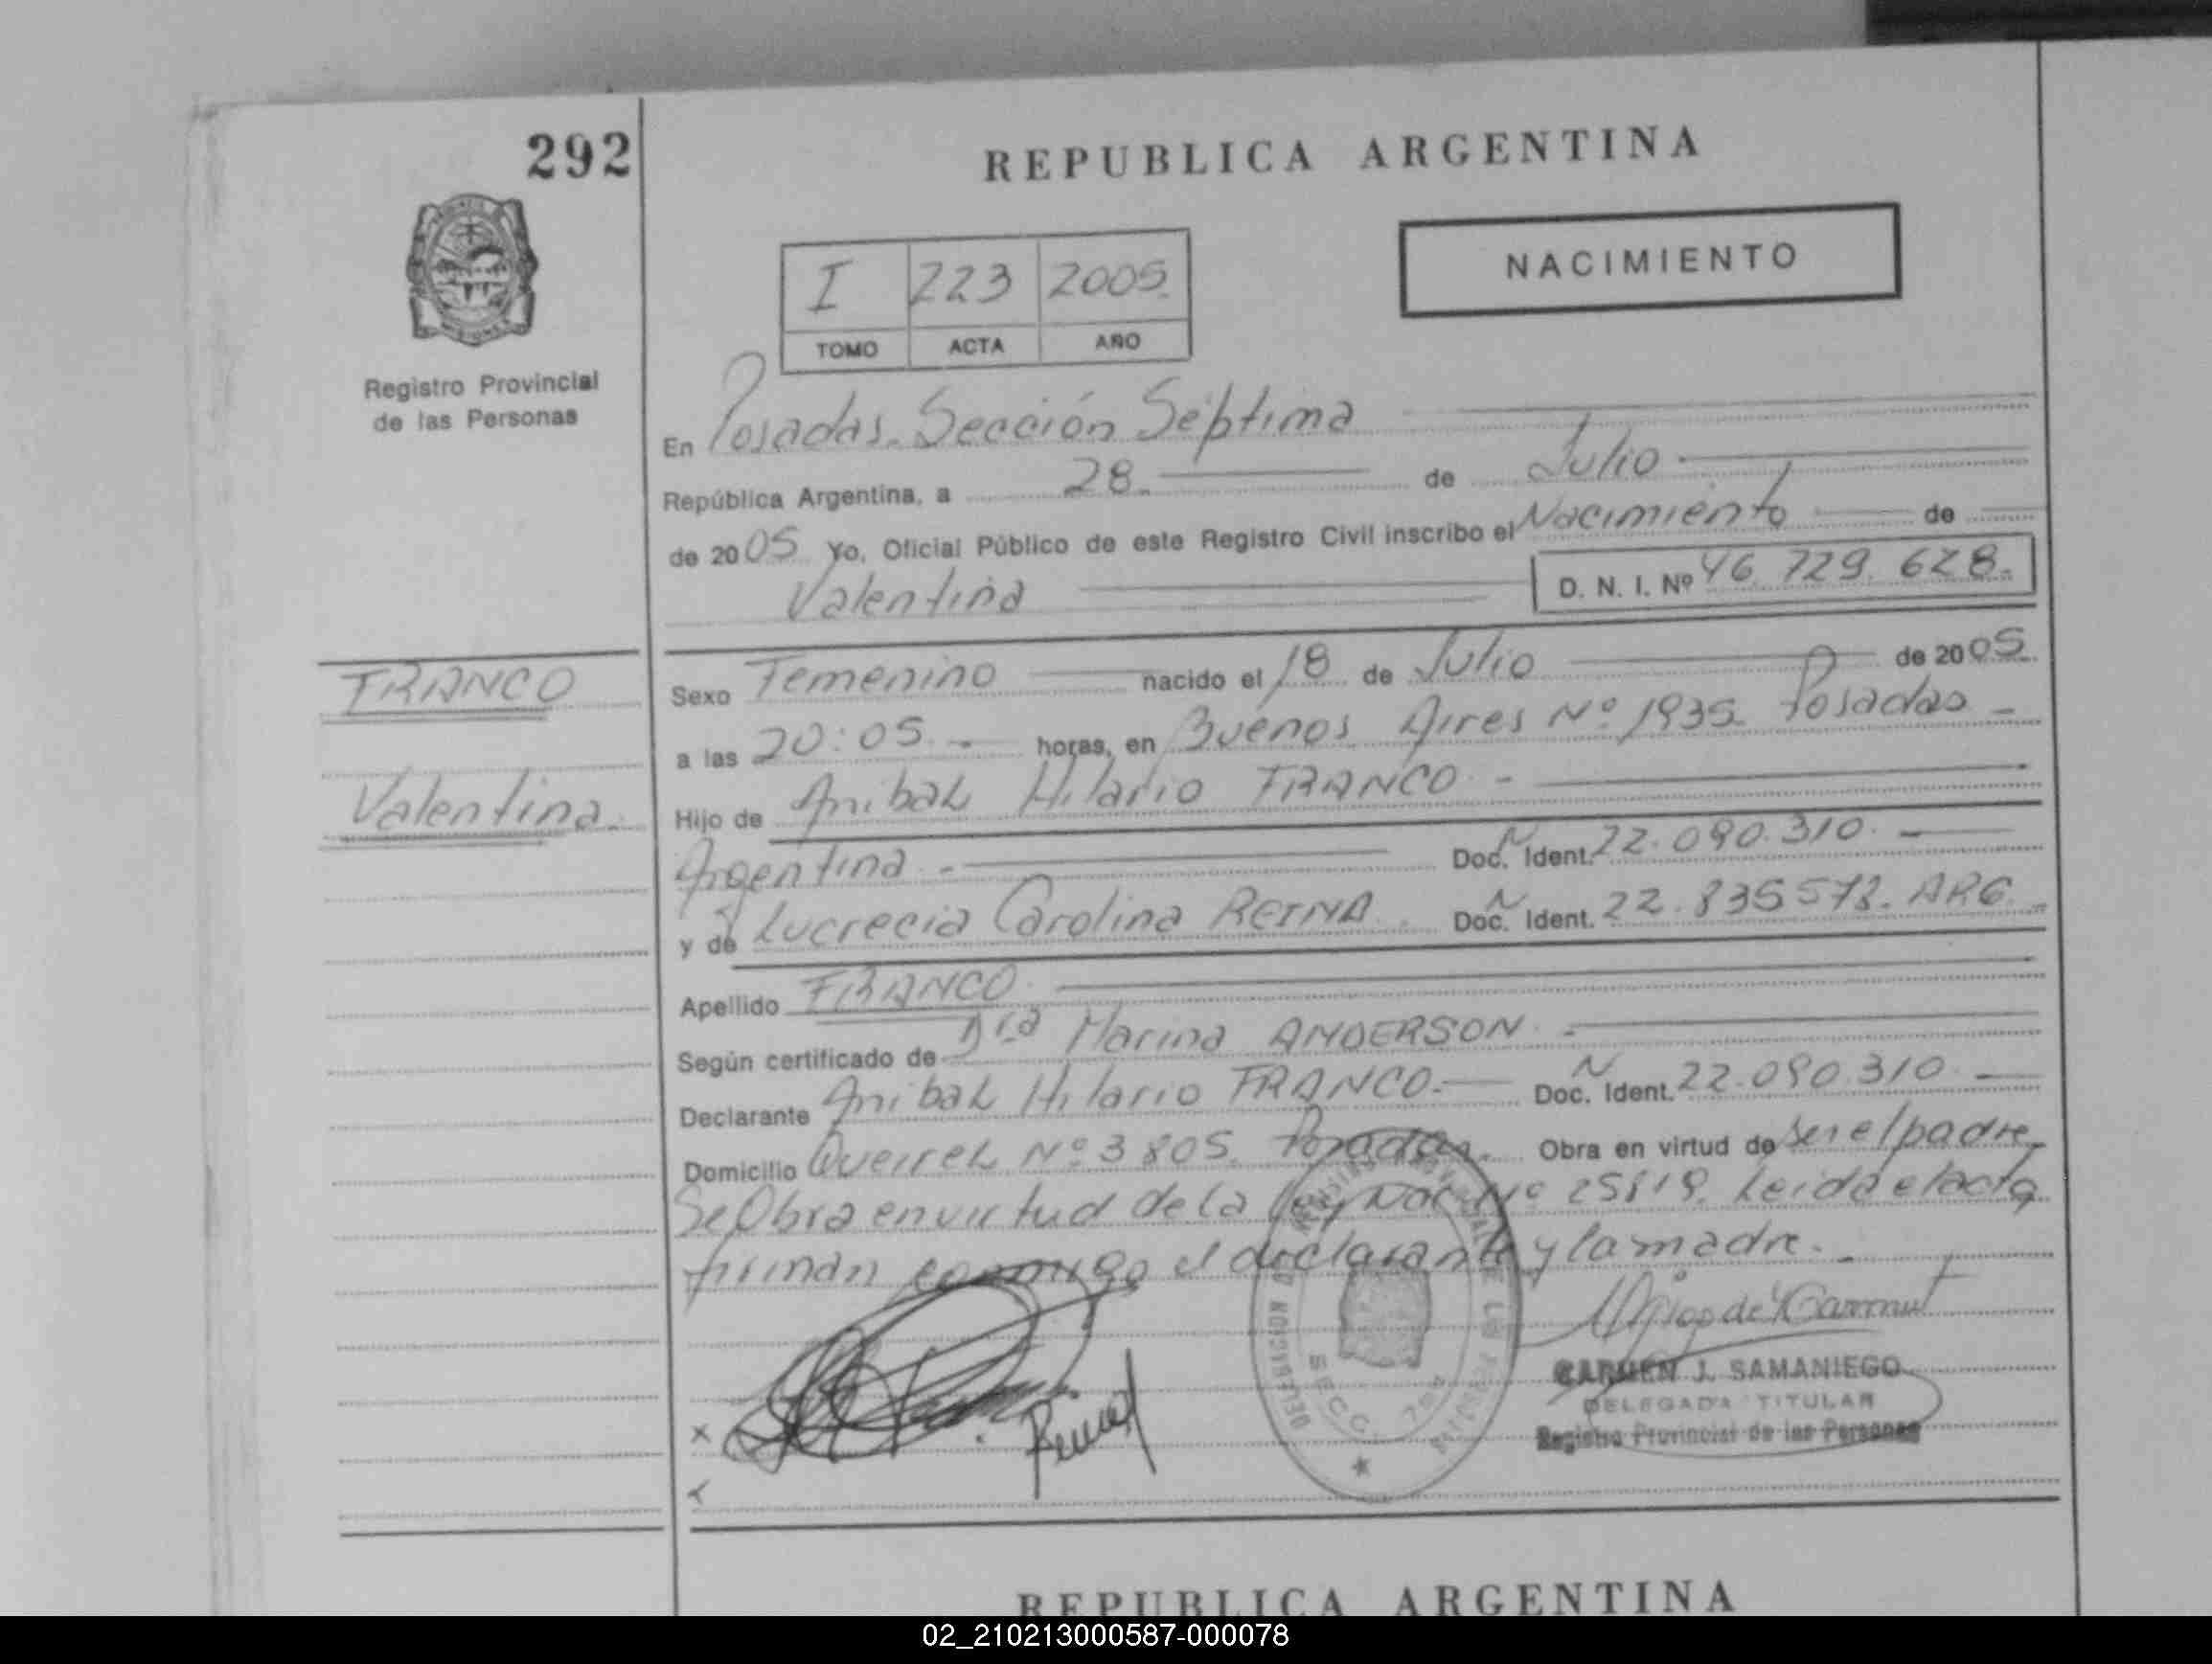 292
REPUBLICA ARGENTINA
NACIMIENTO
I 223 2005
TOMO ACTA AÑO
Registro Provincial
de las Personas
En Posadas. Sección Séptima
República Argentina, a 28. de Julio
de 2005 Yo, Oficial Público de este Registro Civil inscribo el Nacimiento de
Valentina D. N. I. Nº 46 729 628.
FRANCO
Sexo Femenino nacido el 18 de Julio de 2005
a las 20:05.- horas, en Buenos Aires Nº 1935. Posadas -
Valentina.
Hijo de Anibal Hilario FRANCO. -
Argentina.- Doc. Ident. N 22.090.310. -
y de Lucrecia Carolina REINA. Doc. Ident. N 22.835578. ARG.
Apellido FRANCO.
Según certificado de Dra Marina ANDERSON. -
Declarante Anibal Hilario FRANCO.- Doc. Ident. N 22.090.310. -
Domicilio Queirel Nº 3805. Posadas. Obra en virtud de ser el padre.
Se Obra en virtud de la ley Nac. Nº 25819. Leida el acta
firman conmigo el declarante y la madre.-
CARMEN J. SAMANIEGO
DELEGADA TITULAR
Registro Provincial de las Personas
SECC. 7ma
REPUBLICA ARGENTINA
02_210213000587-000078